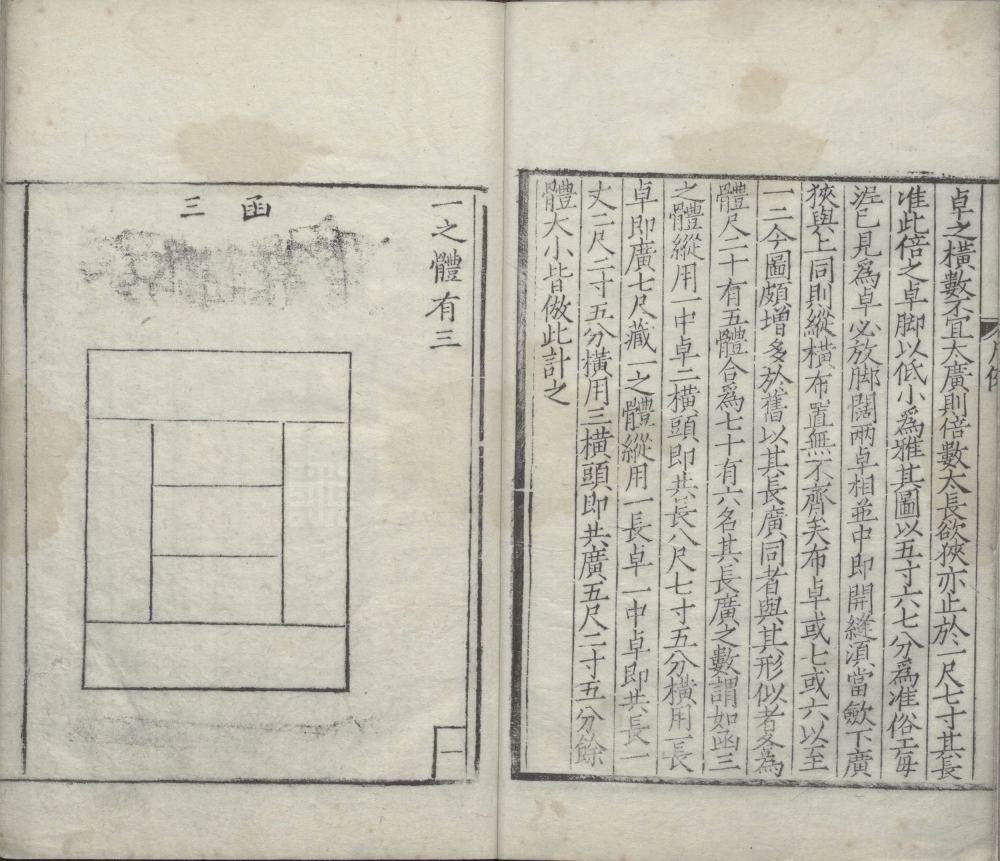 卓之橫數不宜太廣則倍數太長欲狹亦止於一尺七寸其長
准此倍之卓脚以低小爲雅其圖以五寸六七分爲准俗工每
泥已見爲卓必放脚闊兩卓相並中即開縫湏當斂下廣
狹與上同則縱橫布置無不齊矣布卓或七或六以至
一二今圖頗增多於舊以其長廣同者與其形似者各爲
體尺二十有五體合爲七十有六名其長廣之數謂如函三
之體縱用一中卓二橫頭即共長八尺七寸五分橫用一長
卓即廣七尺藏一之體縱用一長卓一中卓即共長一
丈二尺二寸五分橫用三橫頭即共廣五尺二寸五分餘
體大小皆倣此計之
一之體有三
函三
一